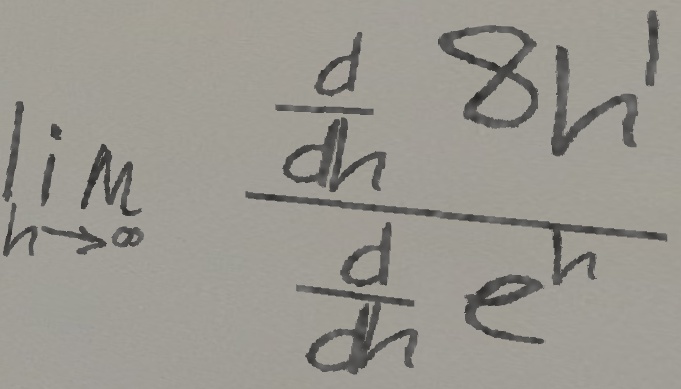 \lim_{h \to \infty} \frac{\frac{d}{dh} 8h^1}{\frac{d}{dh} e^h}